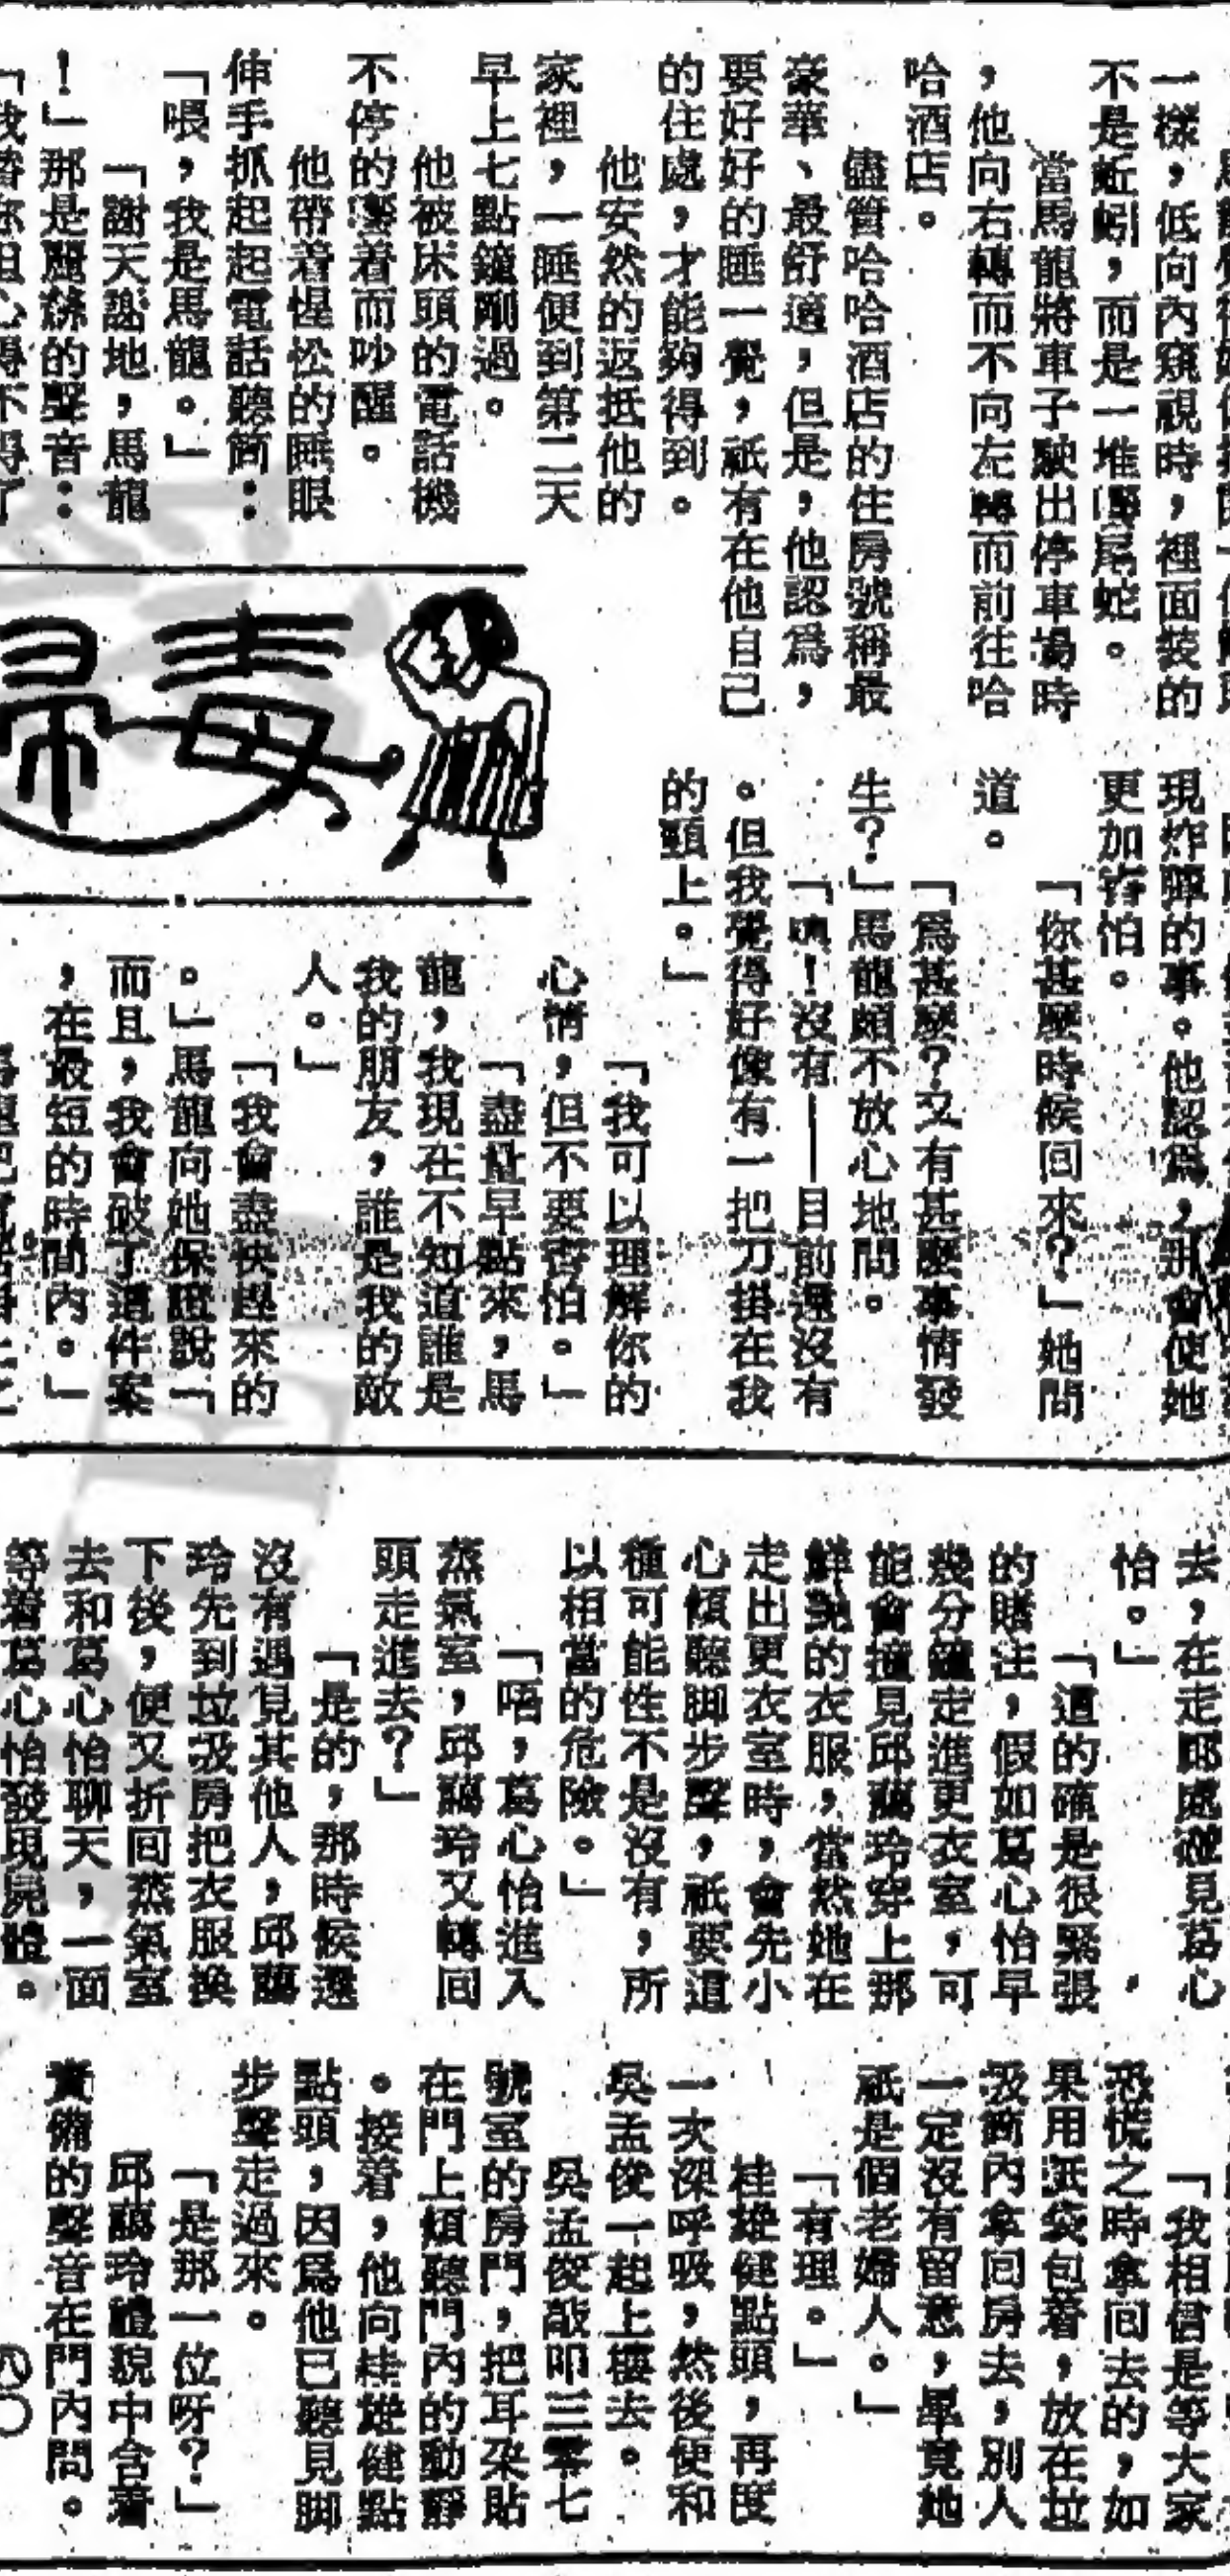 一樣，低向內窺視時，裡面裝的
不是蚯蚓，而是一堆響尾蛇。
當馬龍將車子駛出停車場時
，他向右轉而不向左轉而前往哈
哈酒店。
儘管哈哈酒店的住房號稱最
豪華、最舒適，但是，他認爲，
要好好的睡一覺，祇有在他自己
的住處，才能夠得到。
他安然的返抵他的
家裡，一睡便到第二天
早上七點鐘剛過。
他被床頭的電話機
不停的響着而吵醒。
他帶着惺忪的睡眼
伸手抓起起電話聽筒：
「喂，我是馬龍。」
「謝天謝地，馬龍
！」那是麗絲的聲音：
「我替你担心得不得了
毒
掃
現炸彈的事。他認爲，那會使她
更加害怕。
「你甚麼時候回來？」她問
道。
「爲甚麼？又有甚麼事情發
生？」馬龍頗不放心地問。
「噢！沒有——目前還沒有
。但我覺得好像有一把刀掛在我
的頸上。」
「我可以理解你的
心情，但不要害怕。」
「盡量早點來，馬
龍，我現在不知道誰是
我的朋友，誰是我的敵
人。」
「我會盡快趕來的
。」馬龍向她保證說「
而且，我會破了這件案
，在最短的時間內。」
去，在走廊處碰見葛心
怡。」
「這的確是很緊張
的賭注，假如葛心怡早
幾分鐘走進更衣室，可
能會撞見邱藹玲穿上那
鮮艷的衣服，當然她在
走出更衣室時，會先小
心傾聽脚步聲，祇要這
種可能性不是沒有，所
以相當的危險。」
「唔，葛心怡進入
蒸氣室，邱藹玲又轉回
頭走進去？」
「是的，那時候還
沒有遇見其他人，邱藹
玲先到垃圾房把衣服換
下後，便又折回蒸氣室
去和葛心怡聊天，一面
等着葛心怡發現屍體。
「我相信是等大家
恐慌之時拿回去的，如
果用紙袋包着，放在垃
圾筒內拿回房去，別人
一定沒有留意，畢竟她
祇是個老婦人。」
「有理。」
桂雄健點頭，再度
一次深呼吸，然後便和
吳孟俊一起上樓去。
吳孟俊敲叩三零七
號室的房門，把耳朶貼
在門上傾聽門內的動靜
。接着，他向桂雄健點
點頭，因爲他已聽見脚
步聲走過來。
「是那一位呀？」
邱藹玲禮貌中含着
責備的聲音在門內問。
八〇